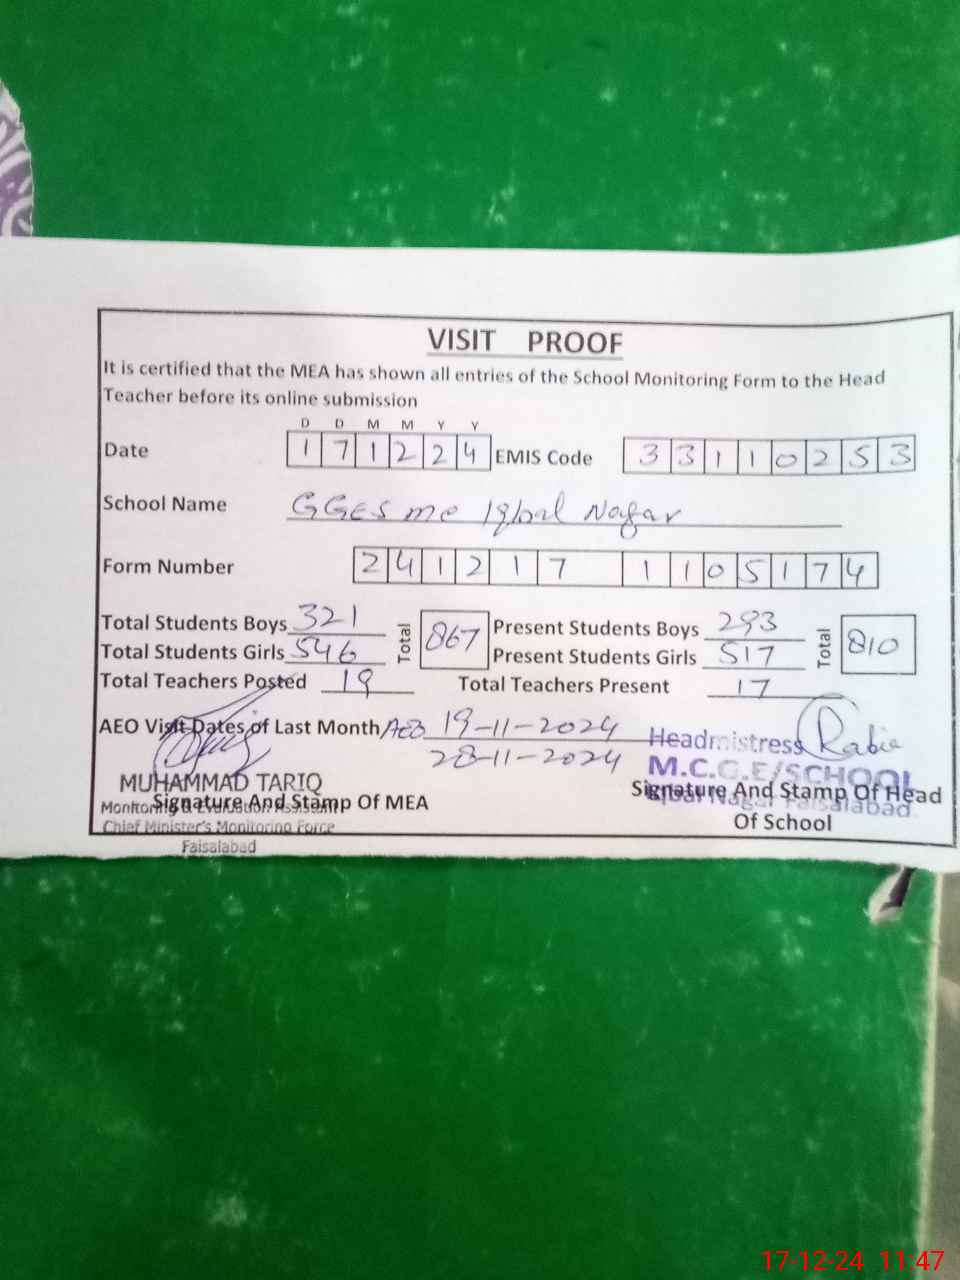 VISIT PROOF
It is certified that the MEA has shown all entries of the School Monitoring Form to the Head
Teacher before its online submission
D D M M Y Y
Date 1 7 1 2 2 4 EMIS Code 3 3 1 1 0 2 5 3
School Name GGES mc Iqbal Nagar
Form Number 2 4 1 2 1 7 1 1 0 5 1 7 4
Total Students Boys 321 Total 867 Present Students Boys 293 Total 810
Total Students Girls 546 Present Students Girls 517
Total Teachers Posted 19 Total Teachers Present 17
AEO Visit Dates of Last Month AEO 19-11-2024
28-11-2024
Headmistress Rabia
M.C.G.E/SCHOOL
Iqbal Nagar Faisalabad
MUHAMMAD TARIQ
Monitoring & Evaluation Assistant
Signature And Stamp Of MEA
Chief Minister's Monitoring Force
Faisalabad
Signature And Stamp Of Head
Of School
17-12-24 11:47